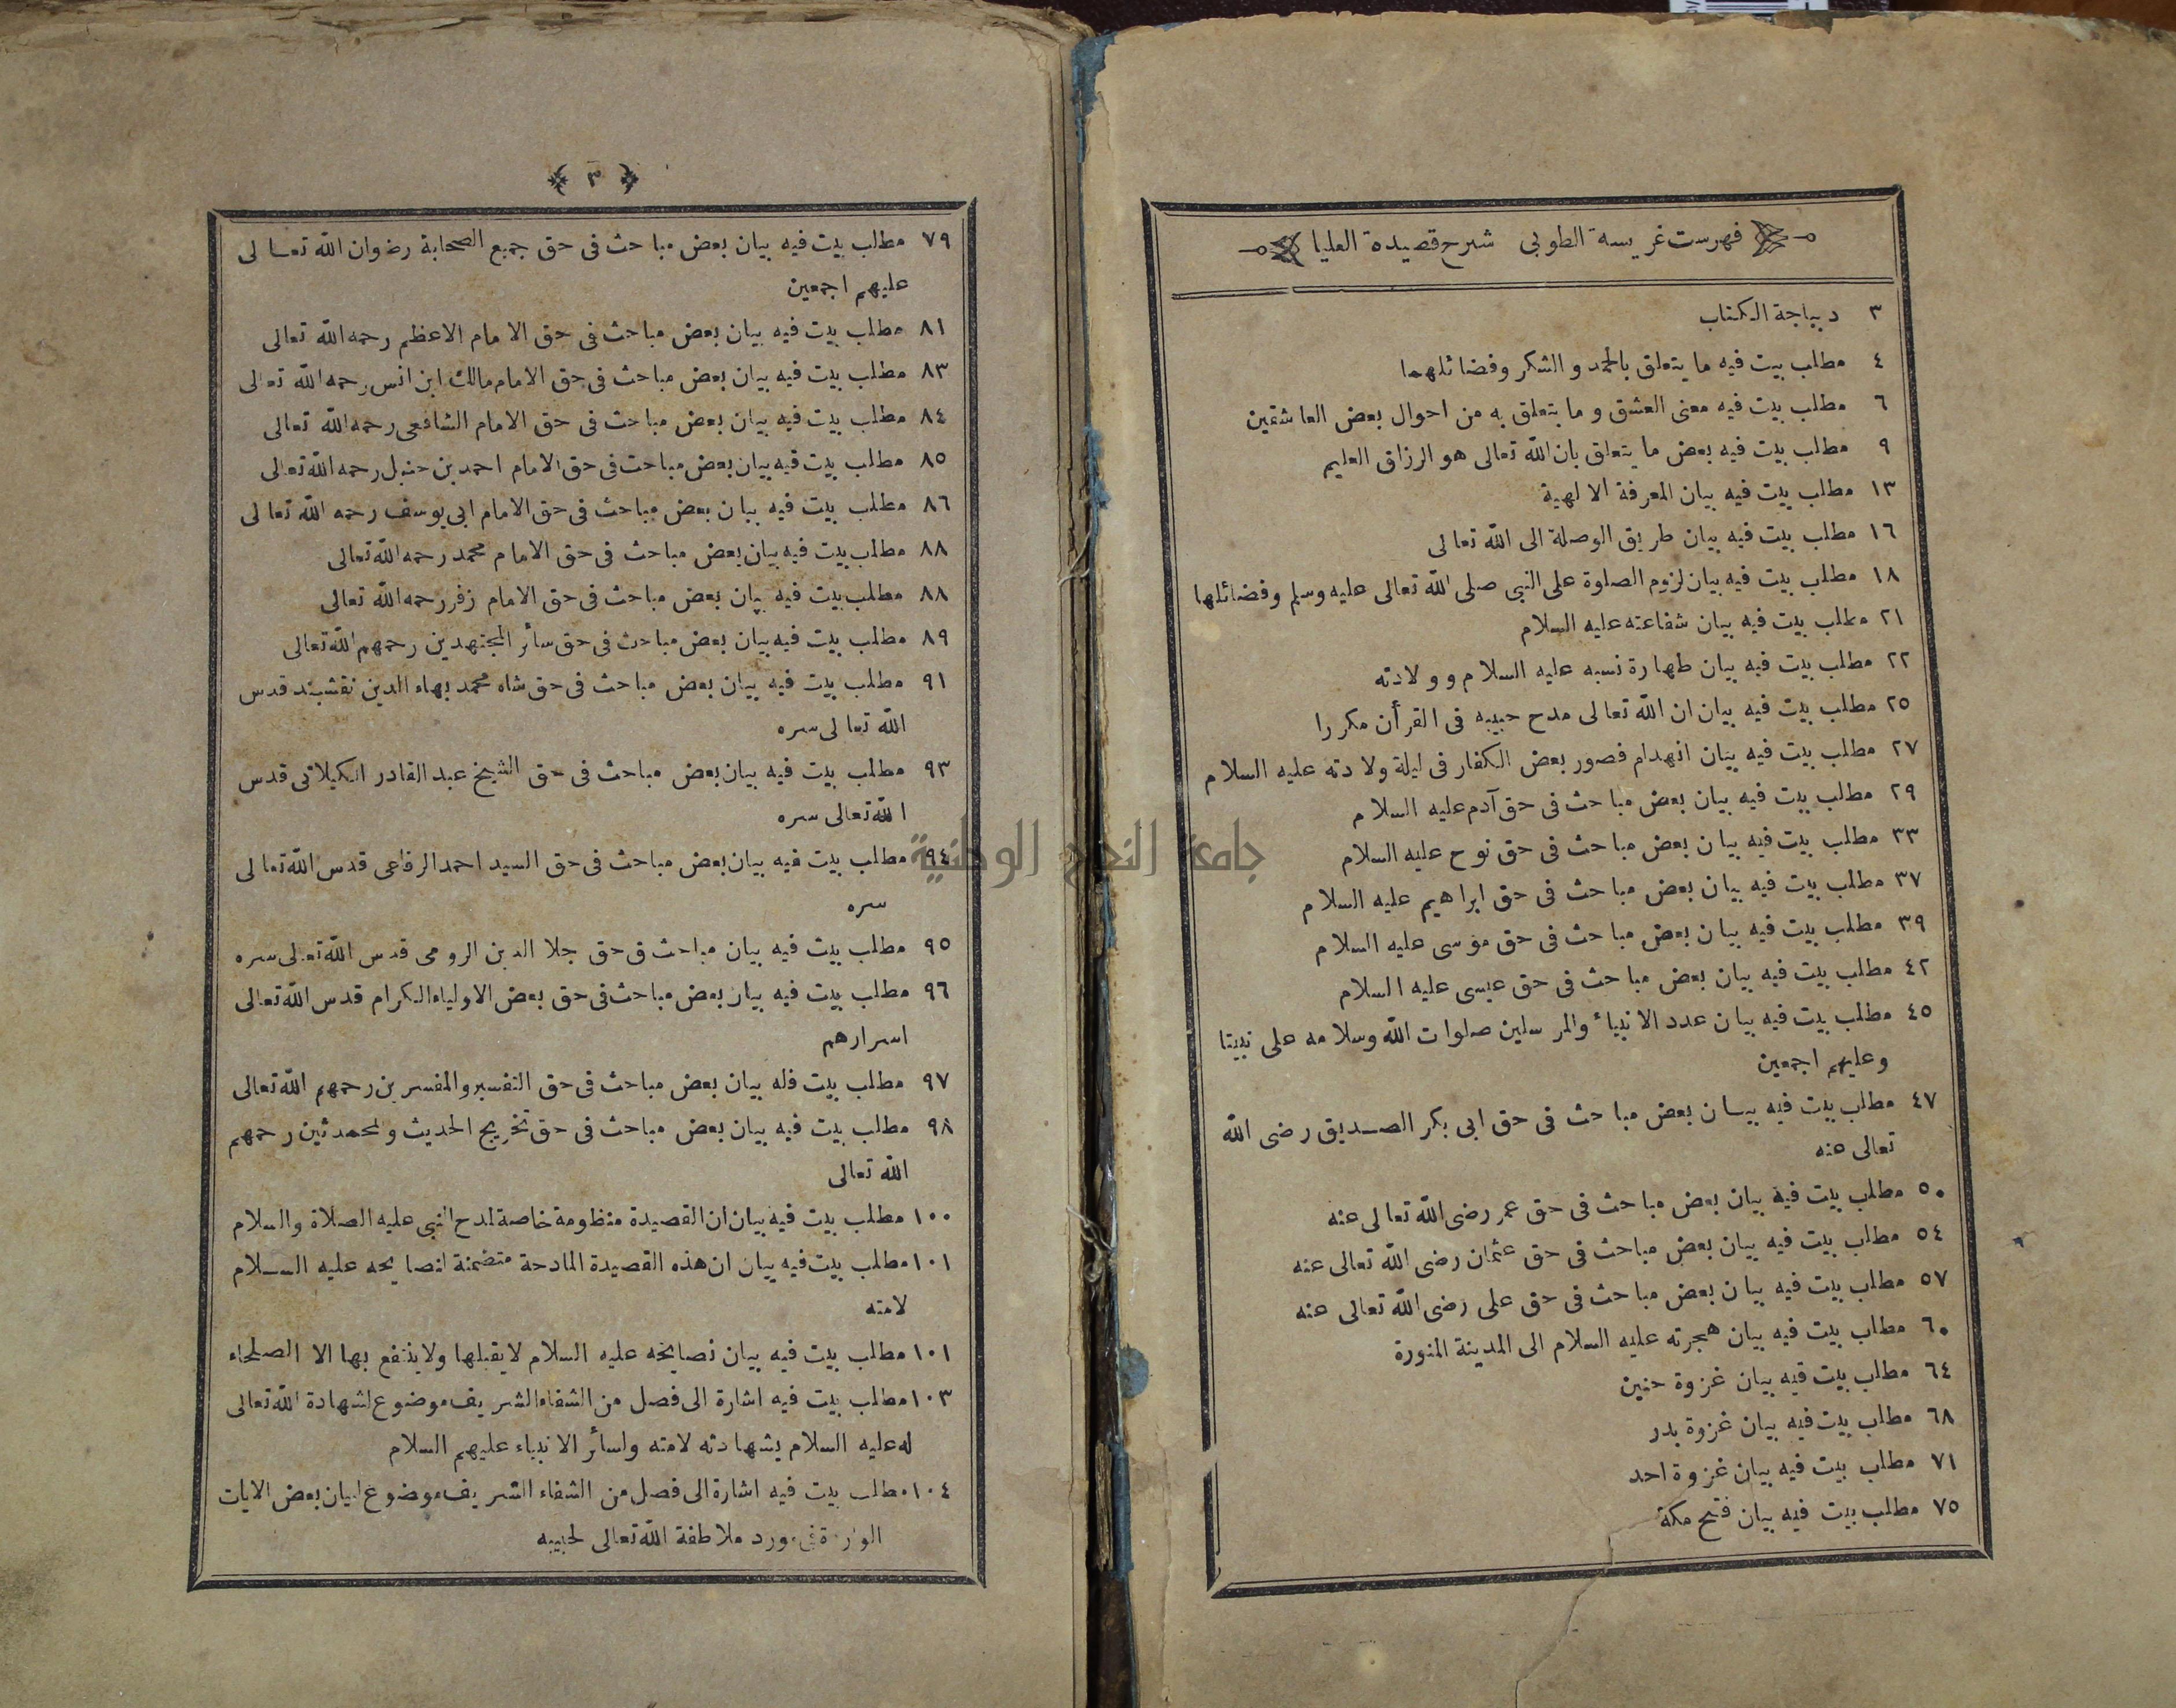 فهرست غريسة الطوبى شرح قصيدة العليا
٣ ديباجة الكتاب
٤ مطلب بيت فيه ما يتعلق بالحمد و الشكر وفضائلهما
٦ مطلب بيت فيه معنى العشق و ما يتعلق به من احوال بعض العاشقين
٩ مطلب بيت فيه بعض ما يتعلق بان الله تعالى هو الرزاق العليم
١٣ مطلب بيت فيه بيان المعرفة الالهية
١٦ مطلب بيت فيه بيان طريق الوصلة الى الله تعالى
١٨ مطلب بيت فيه بيان لزوم الصلوة على النبى صلى الله تعالى عليه وسلم وفضائلها
٢١ مطلب بيت فيه بيان شفاعته عليه السلام
٢٢ مطلب بيت فيه بيان طهارة نسبه عليه السلام و ولادته
٢٥ مطلب بيت فيه بيان ان الله تعالى مدح حبيبه فى القرأن مكررا
٢٧ مطلب بيت فيه بيان انهدام قصور بعض الكفار فى ليلة ولادته عليه السلام
٢٩ مطلب بيت فيه بيان بعض مباحث فى حق آدم عليه السلام
٣٣ مطلب بيت فيه بيان بعض مباحث فى حق نوح عليه السلام
٣٧ مطلب بيت فيه بيان بعض مباحث فى حق ابراهيم عليه السلام
٣٩ مطلب بيت فيه بيان بعض مباحث فى حق موسى عليه السلام
٤٢ مطلب بيت فيه بيان بعض مباحث فى حق عيسى عليه السلام
٤٥ مطلب بيت فيه بيان عدد الانبياء والمرسلين صلوات الله وسلامه على نبينا
وعليهم اجمعين
٤٧ مطلب بيت فيه بيان بعض مباحث فى حق ابى بكر الصديق رضى الله
تعالى عنه
٥٠ مطلب بيت فيه بيان بعض مباحث فى حق عمر رضى الله تعالى عنه
٥٤ مطلب بيت فيه بيان بعض مباحث فى حق عثمان رضى الله تعالى عنه
٥٧ مطلب بيت فيه بيان بعض مباحث فى حق على رضى الله تعالى عنه
٦٠ مطلب بيت فيه بيان هجرته عليه السلام الى المدينة المنورة
٦٤ مطلب بيت فيه بيان غزوة حنين
٦٨ مطلب بيت فيه بيان غزوة بدر
٧١ مطلب بيت فيه بيان غزوة احد
٧٥ مطلب بيت فيه بيان فتح مكة
جامعة النجاح الوطنية
٣
٧٩ مطلب بيت فيه بيان بعض مباحث فى حق جميع الصحابة رضوان الله تعالى
عليهم اجمعين
٨١ مطلب بيت فيه بيان بعض مباحث فى حق الامام الاعظم رحمه الله تعالى
٨٣ مطلب بيت فيه بيان بعض مباحث فى حق الامام مالك ابن انس رحمه الله تعالى
٨٤ مطلب بيت فيه بيان بعض مباحث فى حق الامام الشافعى رحمه الله تعالى
٨٥ مطلب بيت فيه بيان بعض مباحث فى حق الامام احمد بن حنبل رحمه الله تعالى
٨٦ مطلب بيت فيه بيان بعض مباحث فى حق الامام ابى يوسف رحمه الله تعالى
٨٨ مطلب بيت فيه بيان بعض مباحث فى حق الامام محمد رحمه الله تعالى
٨٨ مطلب بيت فيه بيان بعض مباحث فى حق الامام زفر رحمه الله تعالى
٨٩ مطلب بيت فيه بيان بعض مباحث فى حق سائر المجتهدين رحمهم الله تعالى
٩١ مطلب بيت فيه بيان بعض مباحث فى حق شاه محمد بهاء الدين نقشبند قدس
الله تعالى سره
٩٣ مطلب بيت فيه بيان بعض مباحث فى حق الشيخ عبد القادر الكيلانى قدس
الله تعالى سره
٩٤ مطلب بيت فيه بيان بعض مباحث فى حق السيد احمد الرفاعى قدس الله تعالى
سره
٩٥ مطلب بيت فيه بيان مباحث فى حق جلا الدين الرومى قدس الله تعالى سره
٩٦ مطلب بيت فيه بيان بعض مباحث فى حق بعض الاولياء الكرام قدس الله تعالى
اسرارهم
٩٧ مطلب بيت فله بيان بعض مباحث فى حق التفسير والمفسرين رحمهم الله تعالى
٩٨ مطلب بيت فيه بيان بعض مباحث فى حق تخريج الحديث والمحدثين رحمهم
الله تعالى
١٠٠ مطلب بيت فيه بيان ان القصيدة منظومة خاصة لمدح النبى عليه الصلاة والسلام
١٠١ مطلب بيت فيه بيان ان هذه القصيدة المادحة متضمنة لنصايحه عليه السلام
لامته
١٠١ مطلب بيت فيه بيان نصايحه عليه السلام لا يقبلها ولا ينتفع بها الا الصلحاء
١٠٣ مطلب بيت فيه اشارة الى فصل من الشفاء الشريف موضوع لشهادة الله تعالى
له عليه السلام بشهادته لامته ولسائر الانبياء عليهم السلام
١٠٤ مطلب بيت فيه اشارة الى فصل من الشفاء الشريف موضوع لبيان بعض الايات
الواردة فى مورد ملاطفة الله تعالى لحبيبه